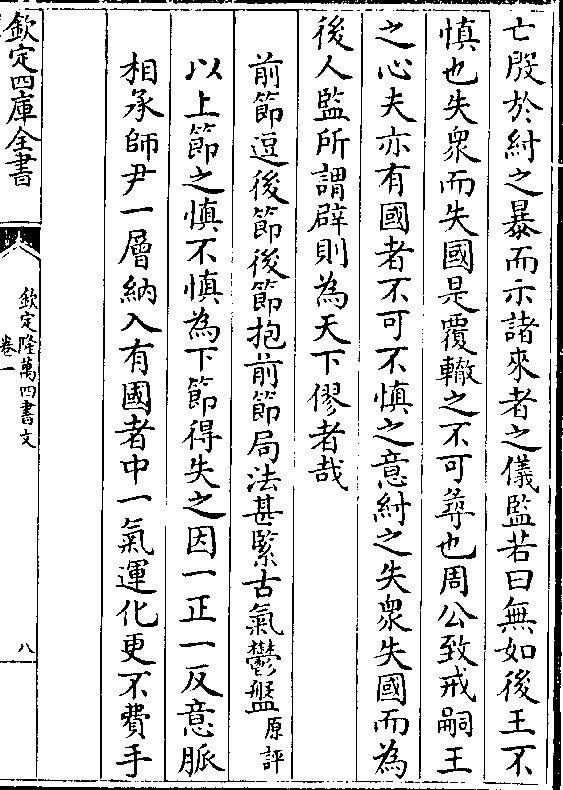 亡殷於紂之暴而示諸來者之儀監若曰無如後王不
慎也失衆而失國是覆轍之不可尋也周公致戒嗣王
之心夫亦有國者不可不慎之意紂之失衆失國而為
後人監所謂辟則為天下僇者哉
前節逗後節後節抱前節局法甚緊古氣鬱盤原評
以上節之慎不慎為下節得失之因一正一反意脈
相承師尹一層納入有國者中一氣運化更不費手
欽定四庫全書
欽定隆萬四書文
卷一
八